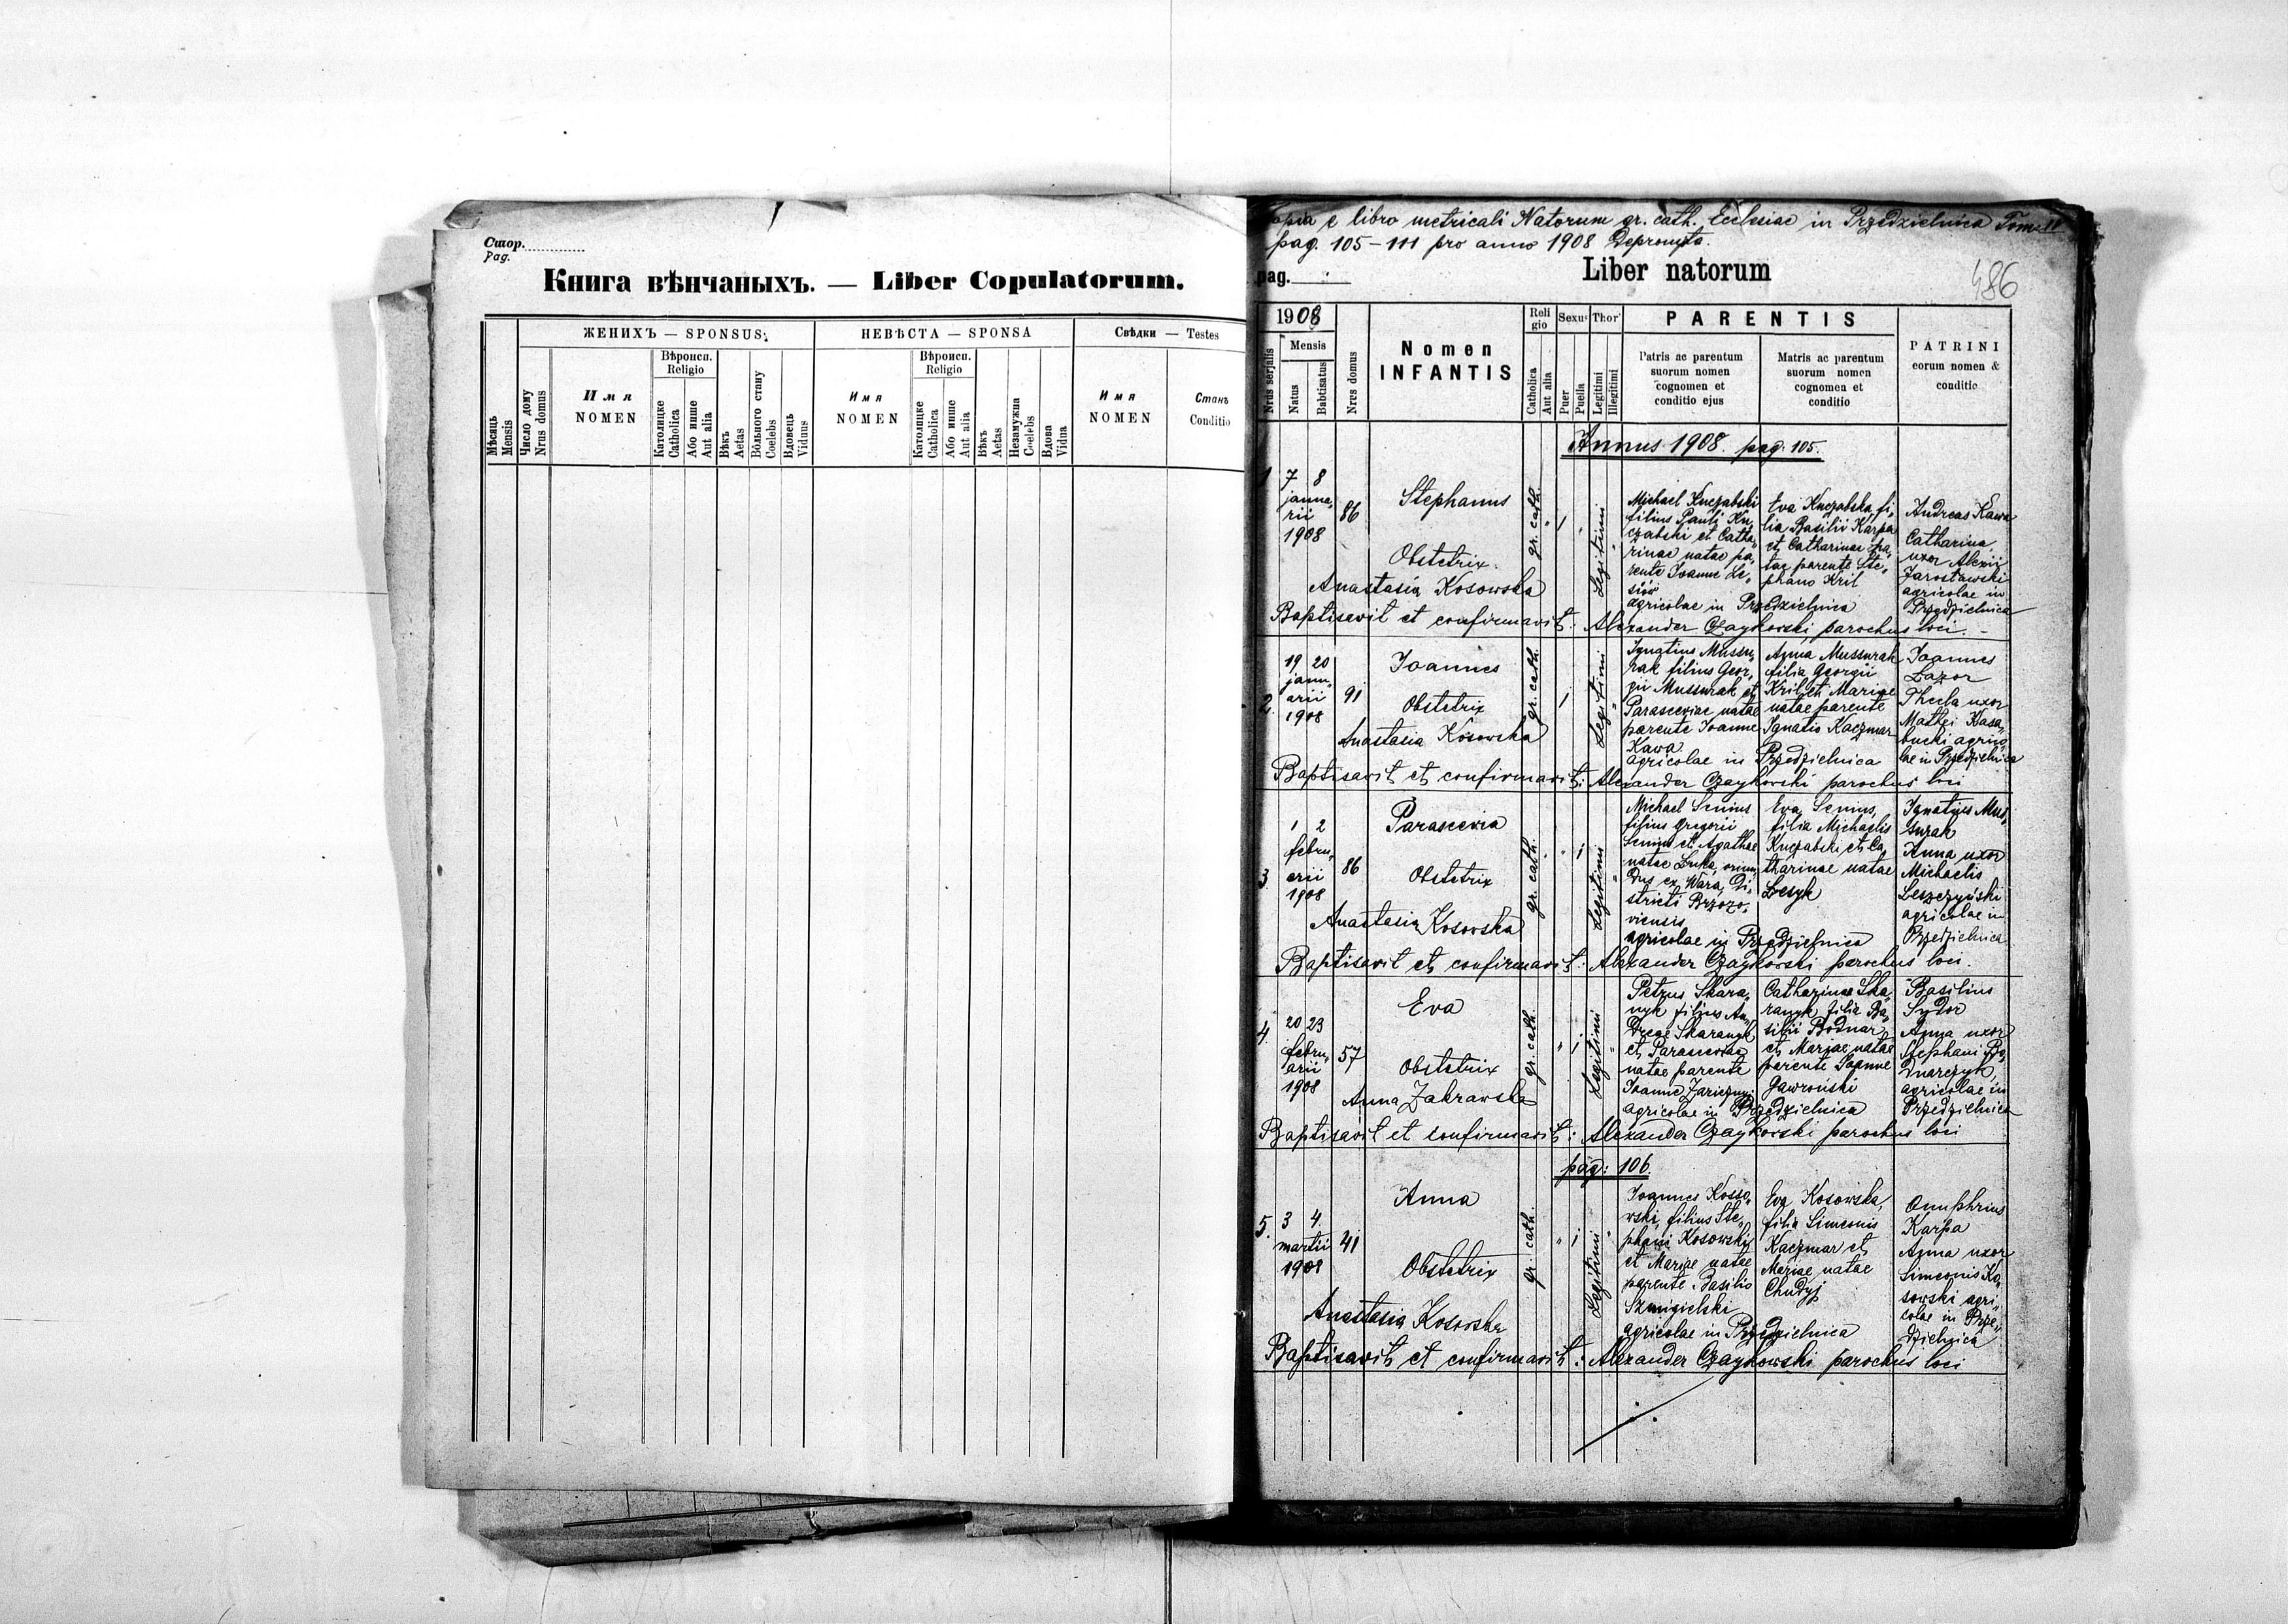 Стор.
Pag.
Книга вѣнчаныхъ. — Liber Copulatorum.
Мѣсяць
Mensis
Число дому
Nrus domus
ЖЕНИХЪ — SPONSUS
Имя
NOMEN
Вѣроисп.
Religio
Католицке
Catholica
Або инше
Aut alia
Вѣкъ
Aetas
Вольного стану
Coelebs
Вдовець
Viduus
НЕВѢСТА — SPONSA
Имя
NOMEN
Вѣроисп.
Religio
Католицке
Catholica
Або инше
Aut alia
Вѣкъ
Aetas
Незамужна
Coelebs
Вдова
Vidua
Свѣдки — Testes
Имя
NOMEN
Станъ
Conditio
Copia e libro metricali Natorum gr. cath. Ecclesiae in Przedzielnica Tom. II
pag. 105–111 pro anno 1908 Deprompta.
pag.
Liber natorum
486
1908
Nrus serjalis
Mensis
Natus
Babtisatus
Nrus domus
Nomen
INFANTIS
Reli
gio
Catholica
Aut alia
Sexus
Puer
Puella
Thor
Legitimi
Illegitimi
PARENTIS
Patris ac parentum
suorum nomen
cognomen et
conditio ejus
Matris ac parentum
suorum nomen
cognomen et
conditio
PATRINI
eorum nomen &
conditio
Annus 1908. pag. 105.
1
7 8
janua,
rii
1908
86
Stephanus
Obstetrix
Anastasia Kosowska
gr. cath.
" 1 "
Legitimi
Michael Knezabski
filius Pauli Kne,
czabski et Catha,
rinae natae pa,
rente Joanne Le,
siów
agricolae in Przedzielnica
Eva Knezabska, fi,
lia Basilii Karpa
et Catharinae na,
tae parente Ste,
phano Kril
Andreas Kawa
Catharina,
uxor Alexii
Jarosławski
agricolae in
Przedzielnica
Baptisavit et confirmavit: Alexander Czaykowski, parochus loci. –
2.
19 20
janu,
arii
1908
91
Joannes
Obstetrix
Anastasia Kosowska
gr. cath.
1
Legitimi
Ignatius Mussu,
rak filius Geor,
gii Mussurak et
Parasceviae natae
parente Joanne
Kawa
agricolae in Przedzielnica
Anna Mussurak
filia Georgii
Kril et Mariae
natae parente
Ignatio Kaczmar
Joannes
Lazor
Thecla uxor
Mathei Kasa,
bucki agrico,
lae in Przedzielnica
Baptisavit et confirmavit: Alexander Czaykowski parochus loci
3
1 2
febru,
arii
1908
86
Parascevia
Obstetrix
Anastasia Kosowska
gr. cath.
" 1
Legitimi
Michael Senius
filius Gregorii
Senius et Agathae
natae Luka, oriun,
dus ex Wara, Di,
stricti Brzozo,
viensis
agricolae in Przedzielnica
Eva Senius,
filia Michaelis
Knezabski et Ca,
tharinae natae
Lesyk
Ignatius Mus,
surak
Anna uxor
Michaelis
Leszczyński
agricolae in
Przedzielnica
Baptisavit et confirmavit: Alexander Czaykowski parochus loci.
4.
20 23
febru,
arii
1908
57
Eva
Obstetrix
Anna Zakrawska
gr. cath.
" 1 "
Legitimi
Petrus Skara,
nyk filius An,
dreae Skaranyk
et Parasceviae
natae parente
Joanne Zariczny
agricolae in Przedzielnica
Catharinae Ska,
ranyk filia Ba,
silii Bodnar
et Mariae natae
parente Joanne
Gawroński
Basilius
Sydor
Anna uxor
Stephani Bo,
dnarczyk,
agricolae in
Przedzielnica
Baptisavit et confirmavit: Alexander Czaykowski parochus loci
pag: 106.
5.
3 4.
martii
1908
41
Anna
Obstetrix
Anastasia Kosowska
gr. cath.
" 1 "
Legitimi
Joannes Kosso,
wski, filius Ste,
phani Kosowski
et Mariae natae
parente Basilio
Szmigielski
agricolae in Przedzielnica
Eva Kosowska,
filia Simeonis
Kaczmar et
Mariae natae
Chudyj
Onuphrius
Karpa
Anna uxor
Simeonis Ko,
sowski agri,
colae in Prze,
dzielnica
Baptisavit et confirmavit: Alexander Czaykowski parochus loci